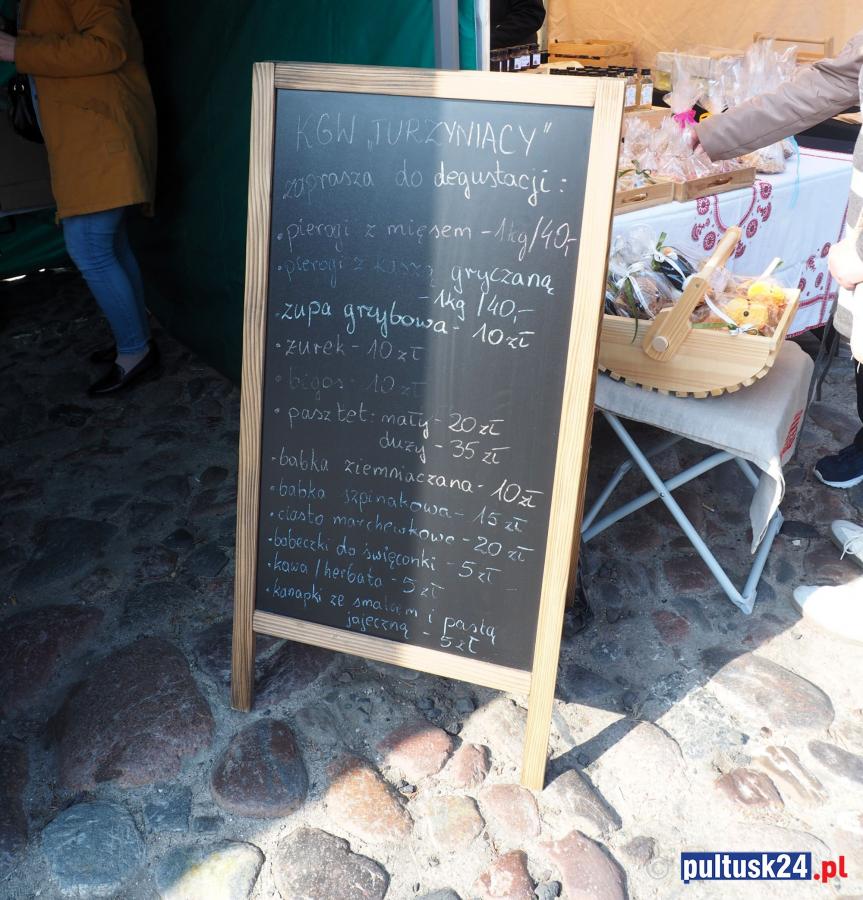 KGW „TURZYNIACY"
zaprasza do degustacji:
• pierogi z mięsem - 1kg/40,-
• pierogi z kaszą gryczaną
- 1kg /40,-
• zupa grzybowa - 10 zł
• żurek - 10 zł
• bigos - 10 zł
• pasztet: mały - 20 zł
duży - 35 zł
• babka ziemniaczana - 10 zł
• babka szpinakowa - 15 zł
• ciasto marchewkowe - 20 zł
• babeczki do święconki - 5 zł
• kawa/herbata - 5 zł
• kanapki ze smalcem i pastą
jajeczną - 5 zł
pultusk24.pl